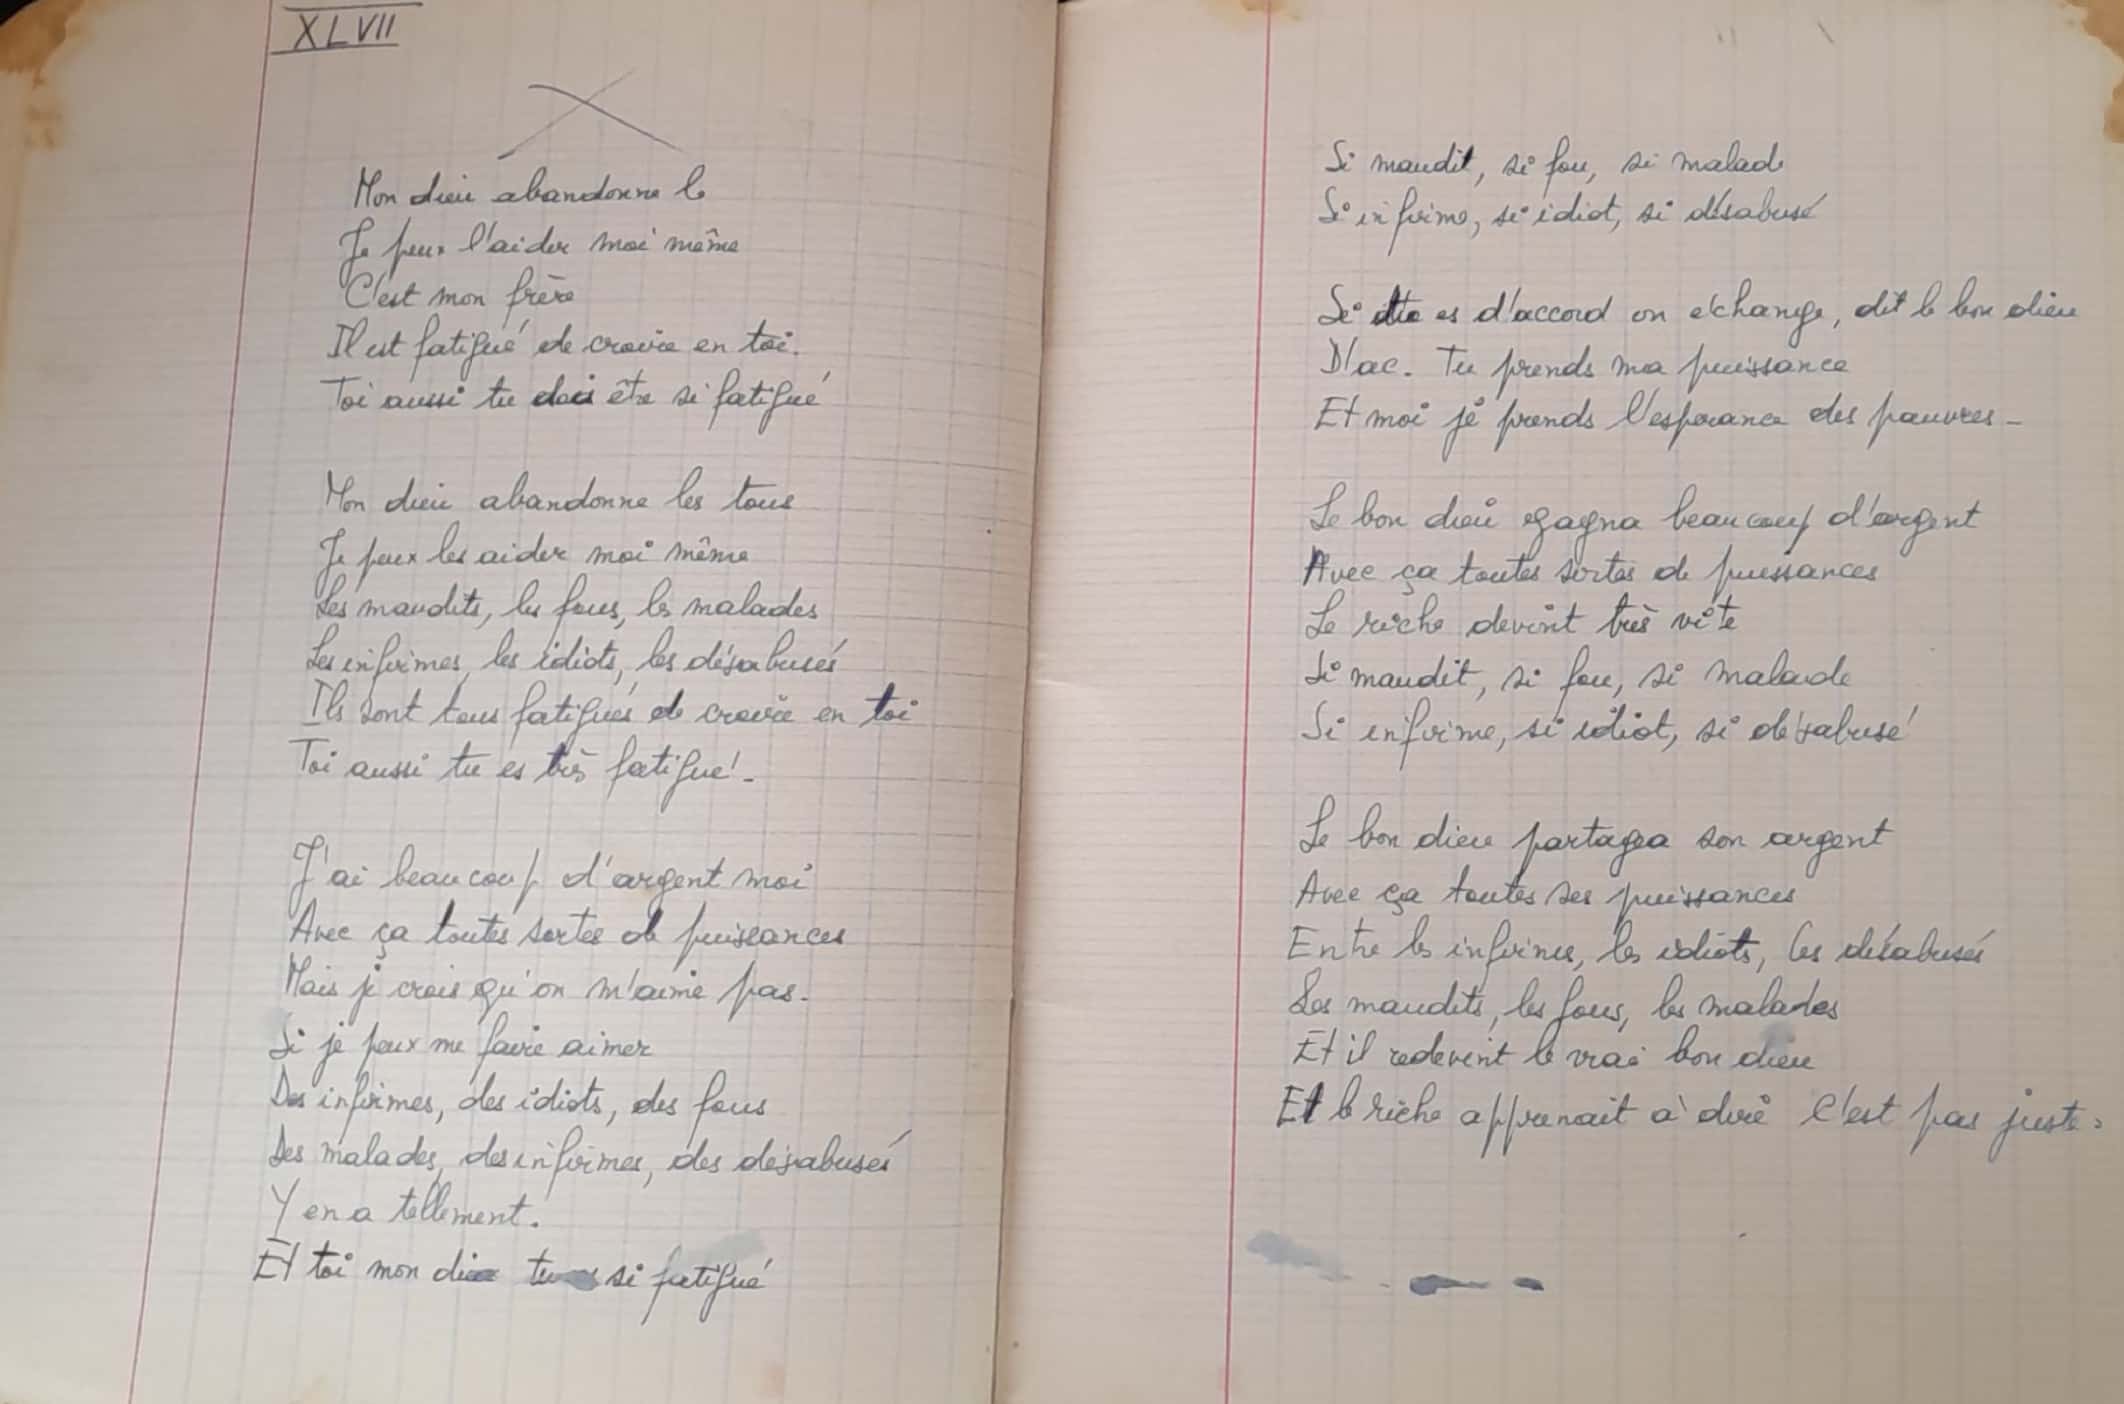 XLVII
Mon dieu abandonne le
Je peux l'aider moi même
C'est mon frère
Il est fatigué de croire en toi.
Toi aussi tu dois être si fatigué
Mon dieu abandonne les tous
Je peux les aider moi même
Les maudits, les fous, les malades
Les infirmes, les idiots, les désabusés
Ils sont tous fatigués de croire en toi
Toi aussi tu es très fatigué.
J'ai beaucoup d'argent moi
Avec ça toutes sortes de puissances
Mais je crois qu'on m'aime pas.
Si je peux me faire aimer
Des infirmes, des idiots, des fous
Des malades, des infirmes, des désabusés
Y en a tellement.
Et toi mon dieu tu es si fatigué
Si maudit, si fou, si malade
Si infirme, si idiot, si désabusé
Si tu es d'accord on échange, dit le bon dieu
D'ac. Tu prends ma puissance
Et moi je prends l'espérance des pauvres -
Le bon dieu gagna beaucoup d'argent
Avec ça toutes sortes de puissances
Le riche devint très vite
Si maudit, si fou, si malade
Si infirme, si idiot, si désabusé
Le bon dieu partagea son argent
Avec ça toutes ses puissances
Entre les infirmes, les idiots, les désabusés
Les maudits, les fous, les malades
Et il redevint le vrai bon dieu
Et le riche apprenait à dire C'est pas juste.